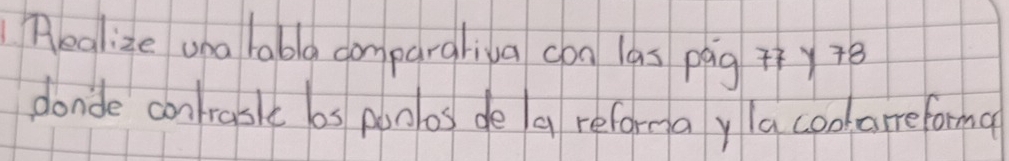 1. Realize una tabla comparativa con las pág 77 y 78
donde contraste los puntos de la reforma y la contarreforma